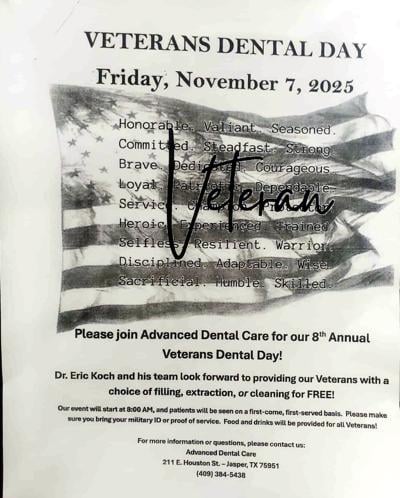 VETERANS DENTAL DAY
Friday, November 7, 2025
Honorable. Valiant. Seasoned.
Committed. Steadfast. Strong.
Brave. Dedicated. Courageous.
Loyal. Patriotic. Dependable.
Service.
Heroic. Experienced. Trained.
Selfless. Resilient. Warrior.
Disciplined. Adaptable. Wise.
Sacrificial. Humble. Skilled.
Veteran
Please join Advanced Dental Care for our 8th Annual
Veterans Dental Day!
Dr. Eric Koch and his team look forward to providing our Veterans with a
choice of filling, extraction, or cleaning for FREE!
Our event will start at 8:00 AM, and patients will be seen on a first-come, first-served basis. Please make
sure you bring your military ID or proof of service. Food and drinks will be provided for all Veterans!
For more information or questions, please contact us:
Advanced Dental Care
211 E. Houston St. – Jasper, TX 75951
(409) 384-5438